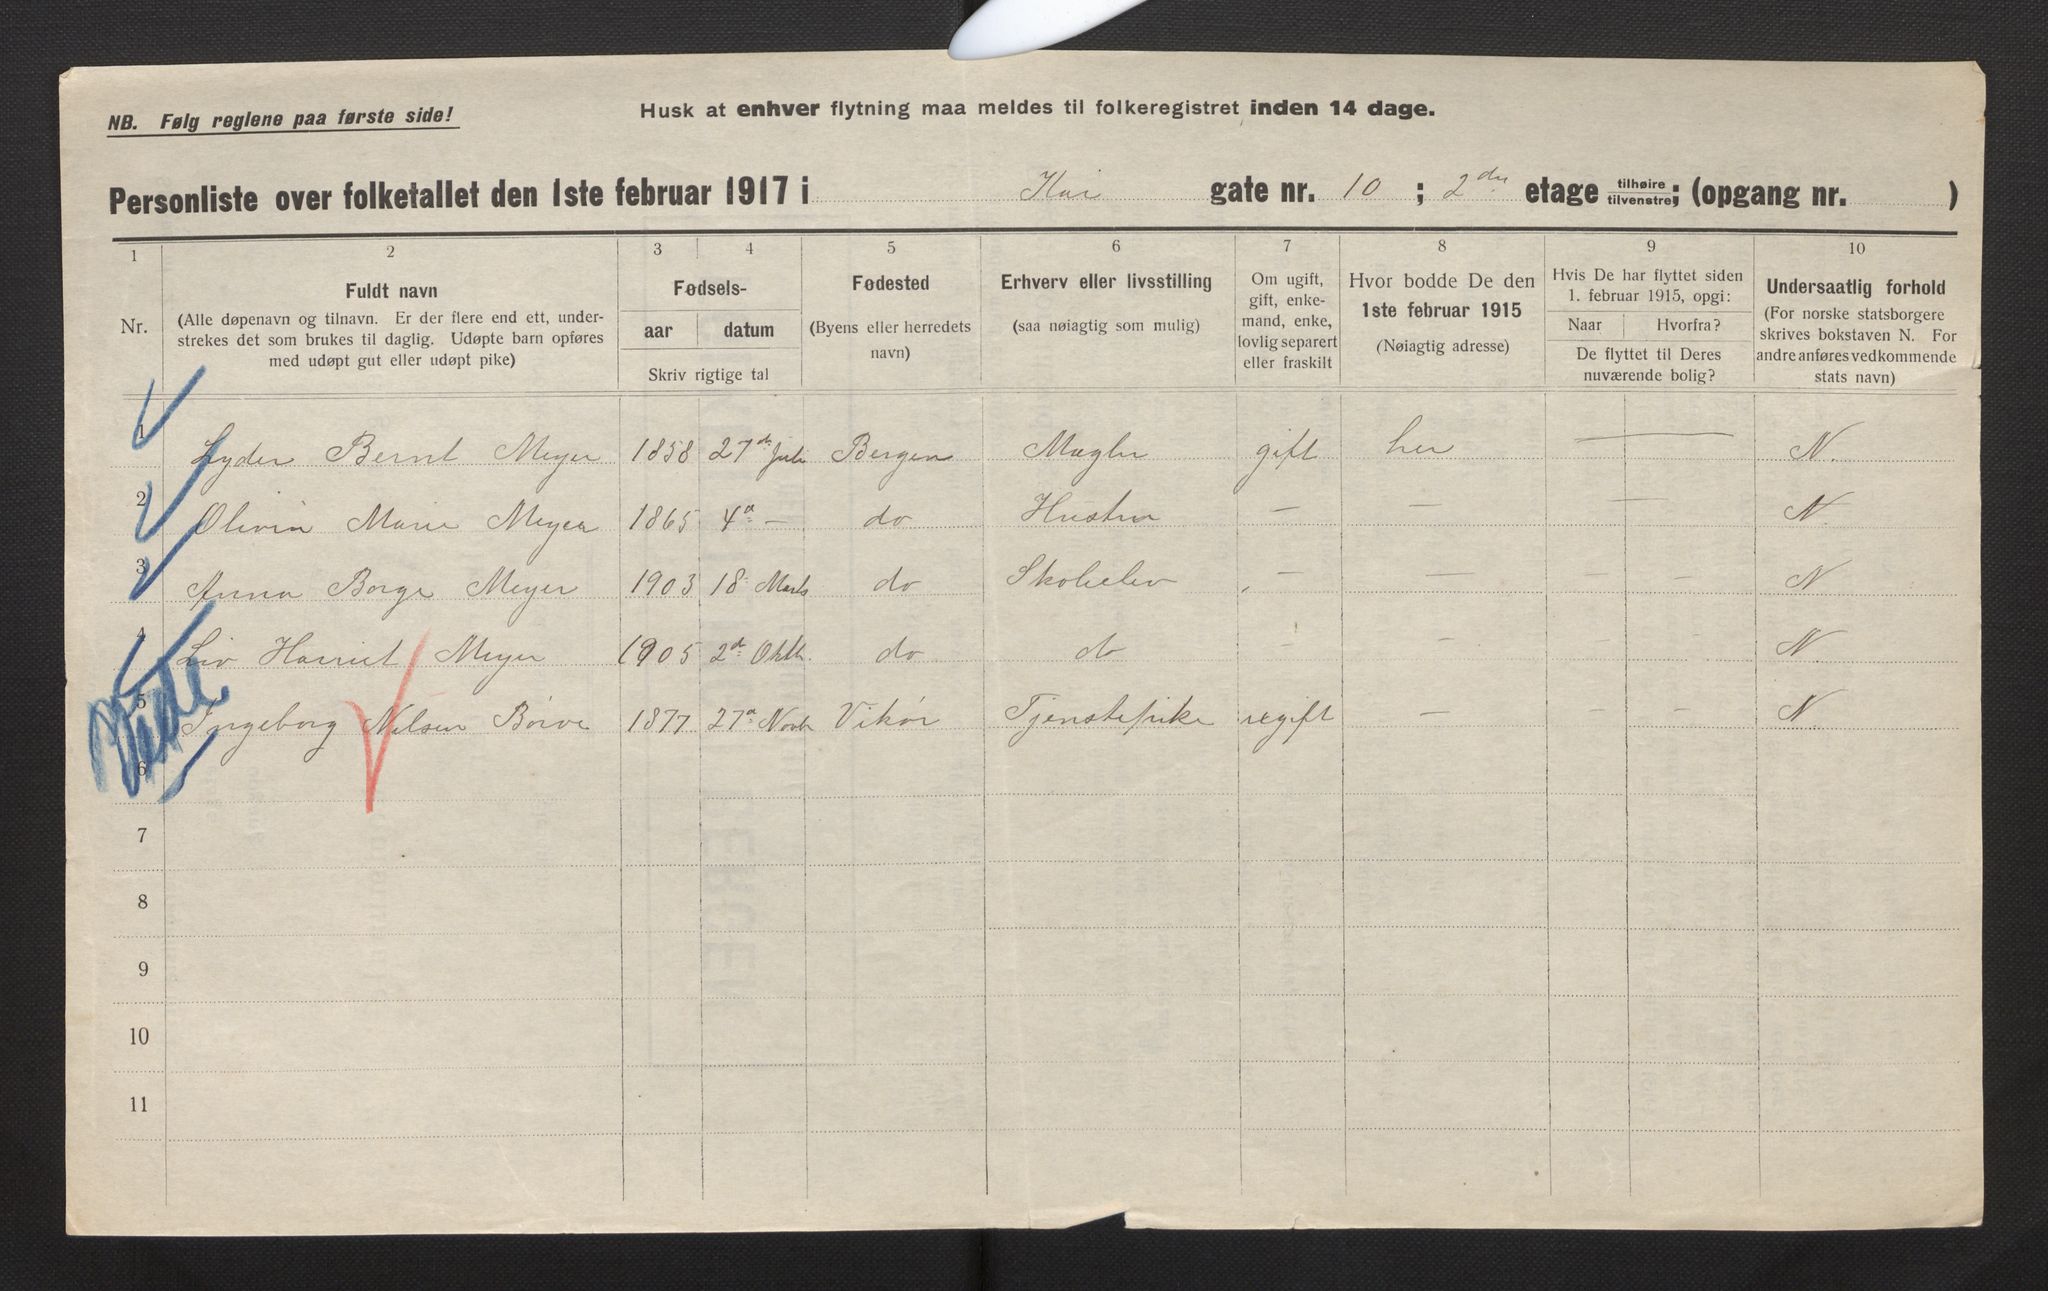 NB. Følg reglene paa første side!
Husk at enhver flytning maa meldes til folkeregistret inden 14 dage.
Personliste over folketallet den 1ste februar 1917 i Kai gate nr. 10 ; 2den etage tilhøire tilvenstre; (opgang nr. )
1 2 3 4 5 6 7 8 9 10
Nr.
Fuldt navn
(Alle døpenavn og tilnavn. Er der flere end ett, under-
strekes det som brukes til daglig. Udøpte barn opføres
med udøpt gut eller udøpt pike)
Fødsels-
aar datum
Skriv rigtige tal
Fødested
(Byens eller herredets
navn)
Erhverv eller livsstilling
(saa nøiagtig som mulig)
Om ugift,
gift, enke-
mand, enke,
lovlig separert
eller fraskilt
Hvor bodde De den
1ste februar 1915
(Nøiagtig adresse)
Hvis De har flyttet siden
1. februar 1915, opgi:
Naar Hvorfra?
De flyttet til Deres
nuværende bolig?
Undersaatlig forhold
(For norske statsborgere
skrives bokstaven N. For
andre anføres vedkommende
stats navn)
1 Lyder Bernt Meyer 1858 27de Juli Bergen Mægler gift her — N.
2 Olivia Marie Meyer 1865 4d — do Hustru — — — N.
3 Anna Borge Meyer 1903 18 Marts do Skoleelev — — — — N
4 Liv Harriet Meyer 1905 2de Oktb. do do — — — — N.
5 Ingeborg Nilsen Börve 1877 27d Novb Vikör Tjenstepike ugift — — — N.
6
7
8
9
10
11